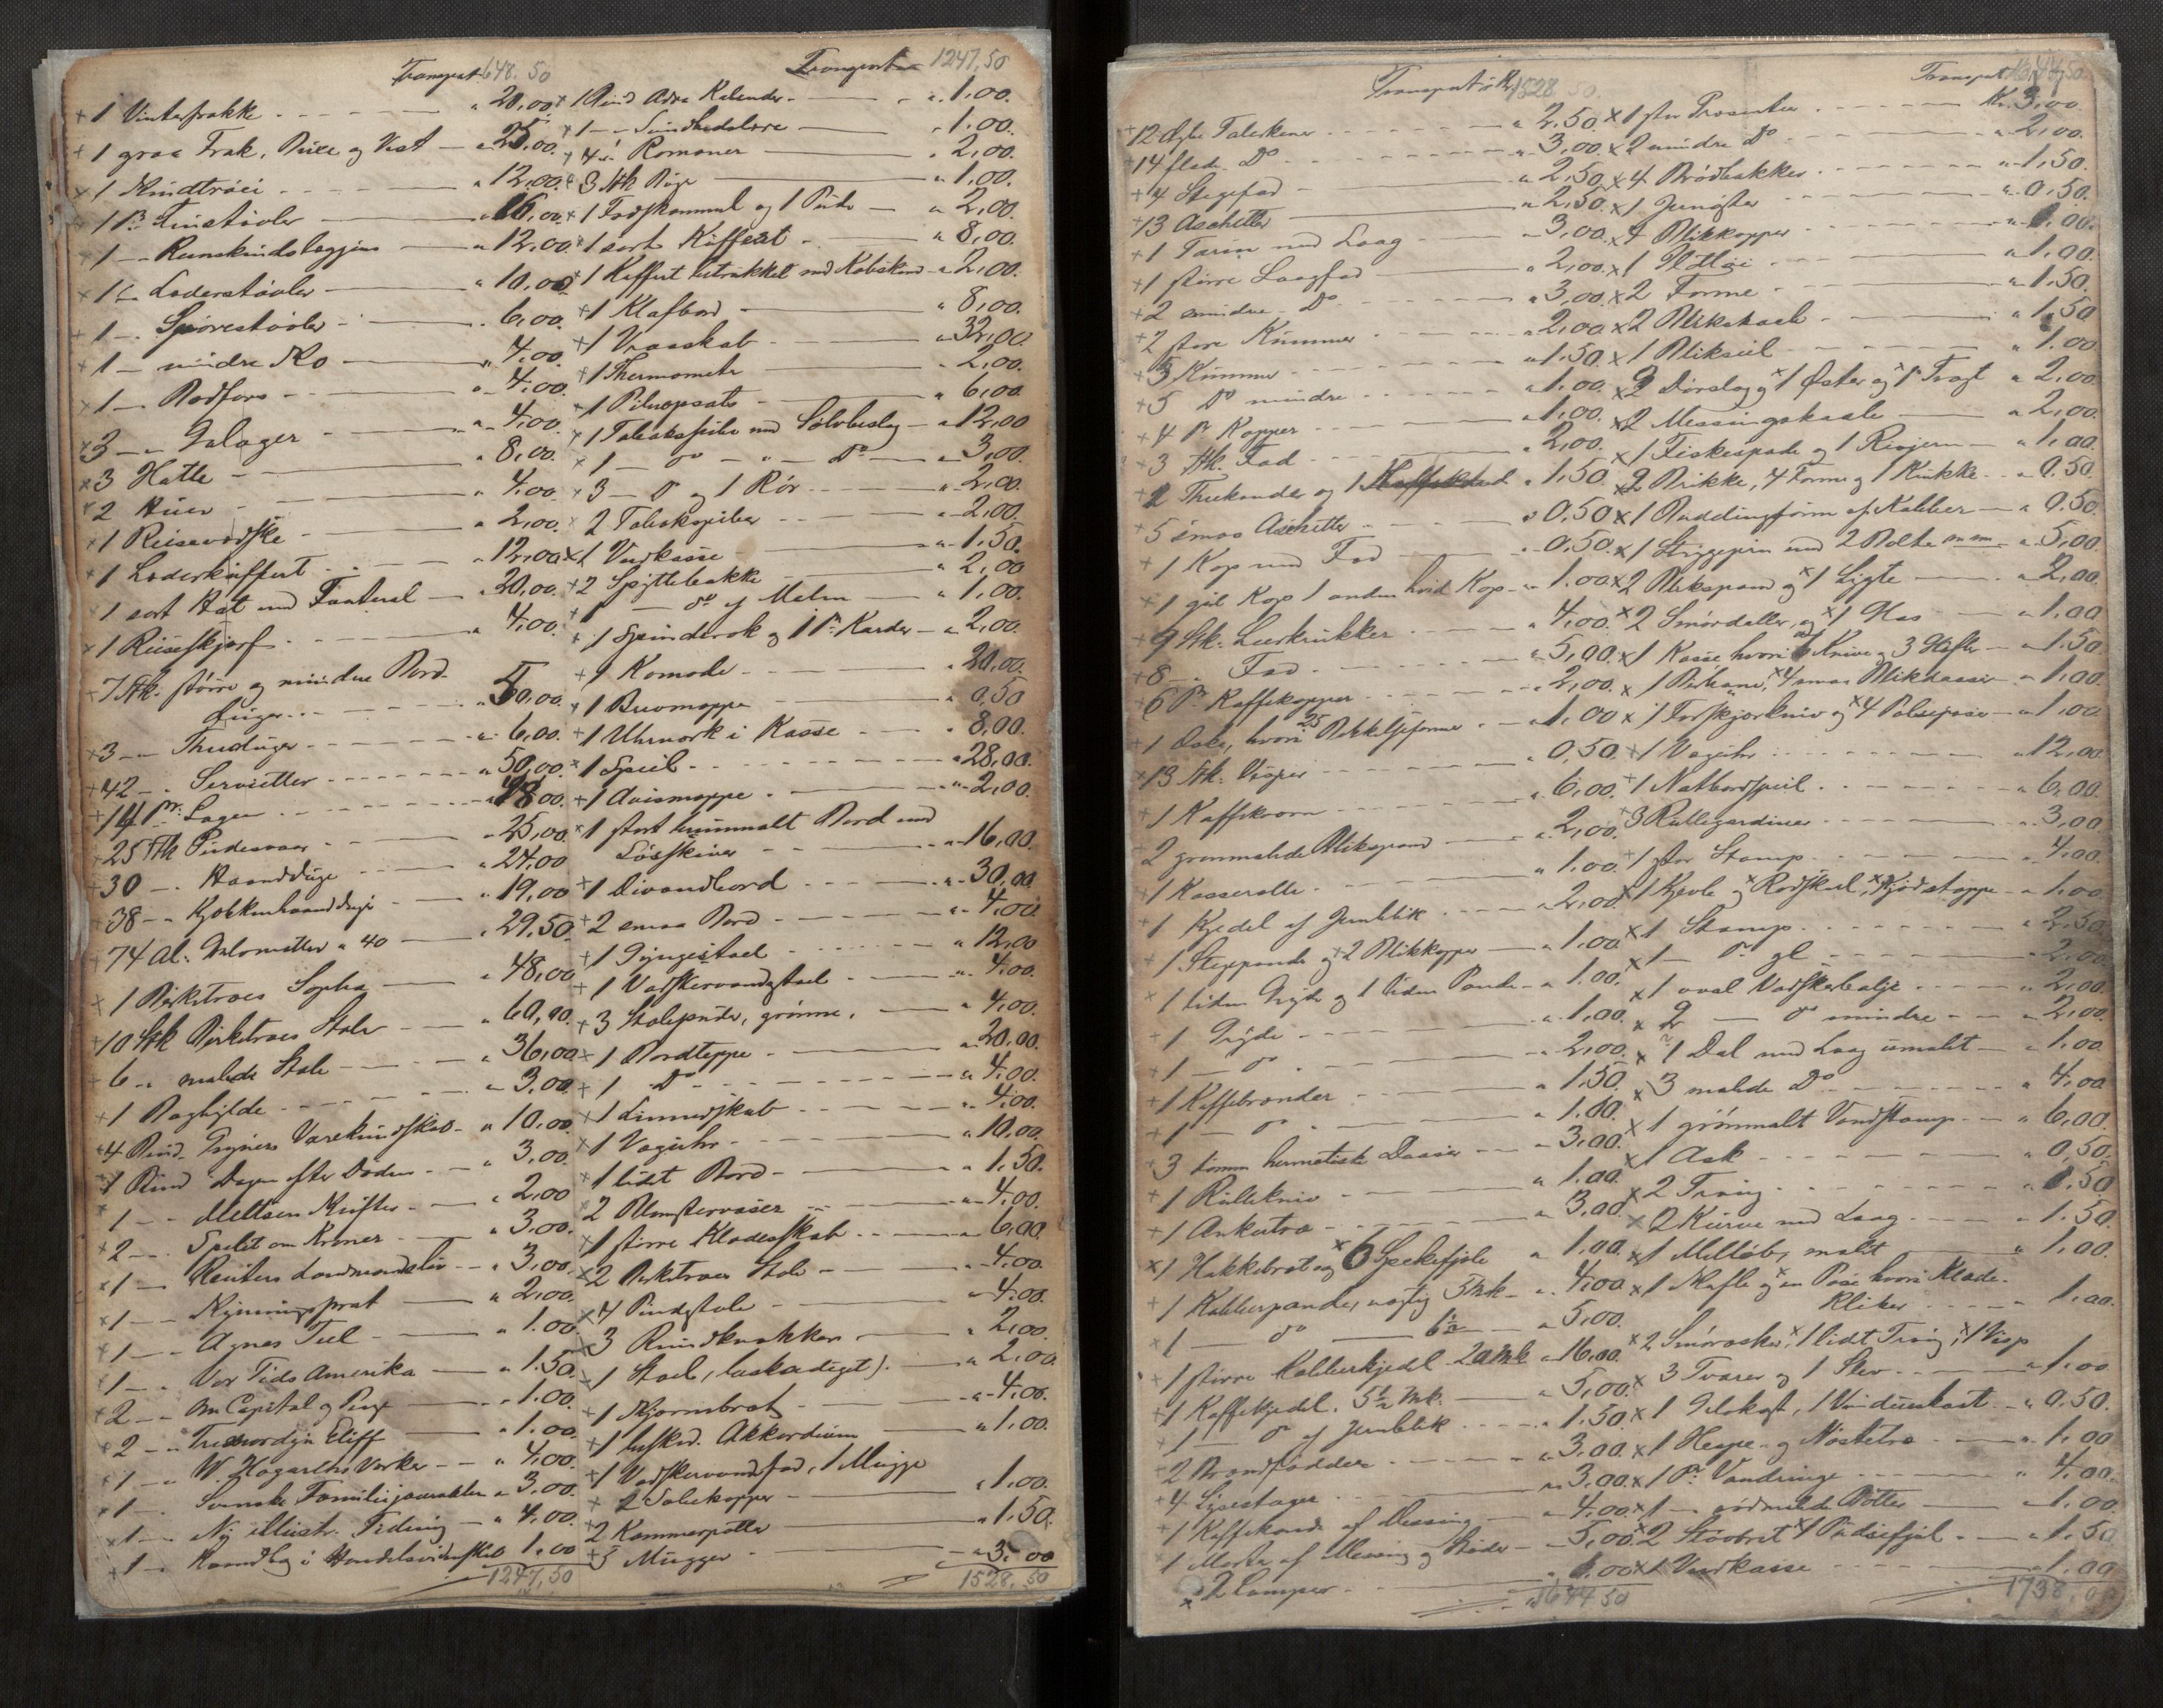 Transport 648.50
+ 1 Vinterfrakke " 20,00
+ 1 graa Frak, Buxe og Vest " 25,00.
× 1 Skindtröie " 12,00.
× 1 Pr. Finstövler " 16,00
× 1 — Reenskindsleggins " 12,00.
× 1 " Læderstövler " 10,00
× 1 — Spörestövler " 6,00.
× 1 — mindre Do " 4,00
× 1 — Bodfors " 4,00.
× 3 — Galager " 4,00.
× 3 Hatte " 8,00.
× 2 Huer " 4,00.
× 1 Reisevadske " 2,00.
× 1 Læderkuffert " 12,00
× 1 sort Hat med Fouteral " 20,00.
× 1 Reiseskjærf " 4,00.
+ 7 Stk. större og mindre Bord-
duger " 50,00.
+ 3 — Theduger " 6,00.
+ 42 — Servietter " 50,00.
+ 14 Pr. Lagen " 48,00.
+ 25 Stk Pudevaar " 25,00.
+ 30 — Haandduge " 24,00
+ 38 — Kjökkenhaandduge " 19,00
+ 74 Al. Gulvmatter a 40 " 29,50.
× 1 Birketræes Sopha " 48,00
+ 10 Stk Birketræes Stole " 60,00.
+ 6 — malede Stole " 36,00
+ 1 Boghylde " 3,00.
+ 4 Bind Gryners Værekundskab " 10,00
× 1 Bind Dagen efter Döden " 3,00.
× 1 — Meltsen Skrifter " 2,00
× 2 — Spelet om Kroner " 3,00.
× 1 — Reuters Landmandsliv " 3,00.
× 1 — Kynningsprat " 2,00.
× 1 — Agnes Tiel " 1.00
× 1 — Vor Tids Amerika " 1.50.
+ 2 — Om Capital og Penge " 1.00.
× 2 — Tremordyn Cliff " 1.00.
× 1 — W. Hogarths Værker " 4,00.
× 1 — Svenske Familiejournalen " 3,00.
× 1 — Ny illustr. Tidning " 4,00.
× 1 — Haandbog i Handelsvidenskab 1.00
1247,50
Transport 1247,50
× 1 Bind Adra Kalender " 1,00.
× 1 — Sundhedslære " 1.00.
+ 4 " Romaner " 2,00.
+ 3 Stk Böger " 1,00.
+ 1 Fodskammel og 1 Pude " 2,00.
× 1 sort Kuffert " 8,00.
× 1 Kuffert betrukket med Kobskind " 2,00.
+ 1 Klafbord " 8,00.
+ 1 Vraaskab " 32,00
+ 1 Thermometer 2,00.
+ 1 Pibeopsats " 6,00
× 1 Tobakspibe med Sölvbeslag " 12,00
× 1 — Do — " — Do " 3,00.
× 3 — Do og 1 Rör " 2,00.
× 2 Tobakspiber " 2,00.
× 1 Vedkasse " 1.50.
+ 2 Spyttebakke " 2,00
+ 1 — Do af Malm " 1,00.
+ 1 Spinderok og 1 Pr. Karder " 2,00.
+ 1 Komode " 20,00.
+ 1 Brevmappe " 0,50
+ 1 Uhrværk i Kasse " 8,00.
× 1 Speil " 28,00.
+ 1 Avismappe " 2,00.
× 1 stort brunmalt Bord med
Lösskiver " 16,00.
+ 1 Divandbord " 30,00
+ 2 smaa Bord " 4,00
+ 1 Gyngestoel " 12,00
+ 1 Vadskervandsstoel " 4,00.
+ 3 Stolepuder, grönne, " 4,00.
× 1 Bordteppe " 20,00.
+ 1 Do " 4,00.
× 1 Linnedskab " 4,00.
× 1 Væguhr " 10,00.
× 1 lidet Bord " 1,50.
× 2 Blomstervaser " 4,00.
× 1 större Klædesskab " 6,00.
× 2 Birketræes Stole " 4,00.
× 4 Pindstole " 4,00.
× 3 Rundkrakker " 2,00.
× 1 Stoel, (beskadiget) " 2,00
× 1 Skjærmbræt " 4,00.
× 1 beskad. Akkordium " 1,00.
× 1 Vadskervandfad, 1 Mugge
× 2 Sæbekopper " 1,00.
× 2 Kammerpotter " 1.50.
+ 5 Mugger " 3,00
1528,50
Transport Kr. 1528.50.
+ 12 dybe Talerkener " 2,50.
+ 14 flade Do " 3,00.
+ 4 Stegefad " 2,50.
+ 13 Aschetter " 2,50.
+ 1 Tarin med Laag " 3,00.
× 1 större Laagfad " 2,00.
× 2 mindre Do " 3,00.
× 2 store Kummer " 2,00.
× 3 Kummer " 1.50.
× 5 Do mindre " 1.00.
+ 4 Pr Kopper " 1,00.
× 3 Stk. Fad " 2,00.
+ 2 Theekander og 1 Kaffekand " 1,50.
+ 5 smaa Aschetter " 0,50
× 1 Kop med Fad " 0,50.
× 1 gul Kop 1 anden hvid Kop " 1.00
+ 9 Stk. Leerkrukker " 4,00.
+ 8 — Fad " 5,00.
× 6 Pr Kaffekopper " 2,00.
+ 1 Æske, hvori 25 Bakkelseformer " 1,00
× 13 Stk. Visper " 0,50.
× 1 Kaffekværn " 6,00.
× 2 grønmalede Blikspand " 2,00.
× 1 Kasserolle " 1.00.
× 1 Kjedel af Jernblik " 2,00
× 1 Stegepande og 2 Blikkopper " 1,00
× 1 liden Gryde og 1 liden Pande " 1.00.
+ 1 Gryde " 1,00.
× 1 — Do " 2,00.
+ 1 Kaffebrænder " 1,50.
+ 1 — Do " 1.00.
× 3 tomme hermetiske Daaser " 3,00.
+ 1 Rullekniv " 1.00
× 1 Ankertræ " 3,00.
× 1 Hakkebræt og 6 Spekefjöle " 1,00.
× 1 Kobberpande, vægtig 5 Mk " 4,00
× 1 — Do — 6½ " 5,00.
× 1 större Kobberkjedl 20 Mk " 16,00.
+ 1 Kaffekjedel 5½ Mk. " 5,00.
+ 1 — Do af Jernblik " 1.50
× 2 Brandfödder " 3,00.
+ 4 Lysestager " 3,00
+ 1 Kaffekande af Messing " 4,00
× 1 Morter af Messing og Stöder " 5,00
× 2 Lamper " 6.00
1644 50
Transport 1644,50.
× 1 stor Præsenter Kr. 3,00.
× 2 mindre Do " 2,00.
× 4 Brödbakker " 1,50.
× 1 Jernöster " 0,50.
× 4 Blikkopper " 1,00.
× 1 " 1,00.
× 2 Forme " 1.50.
× 2 Blikskaale " 1,50
× 1 Bliksiil " 1.00
× 2 Dørslag og 1 Øster og 1 Tragt " 2,00.
× 2 Messingskaale " 2,00.
× 1 Fiskespade og 1 Rivjern " 1,00.
× 2 Brikke, 4 Forme og 1 Krukke " 0.50
× 1 Puddingform af Kobber " 0,50.
× 1 Strygejern med 2 Bolte " 5,00.
× 2 Blikspand og 1 Lygte " 2,00.
× 2 Smördaller, og 1 Glas " 1,00
× 1 Kasse hvori 6 Knive og 3 Gafler " 1.50
× 1 Birhane, 4 smaa Blikdaaser " 1,00
× 1 Forskjærkniv og 4 Pølsepose " 1,00
× 1 Væguhr " 12,00.
+ 1 Natbordspeil " 6,00.
+ 3 Rullegardiner " 3,00
+ 1 stor Stamp " 4,00
× 1 Kjevle og Rodskaal, Kjödstappe " 1,00
× 1 Stamp " 2,50
× 1 — Do gl " 2,00
× 1 oval Vadskebalje " 2,00.
× 2 — Do mindre " 2,00.
× 1 Dal med Laag umalet " 1,00
× 3 malede Do " 4,00
× 1 grönmalt Vandstamp " 6,00.
× 1 Ask " 0,50.
× 2 Traug " 1.50
× 2 Kurve med Laag " 1.50.
× 1 Meltöb, malet " 1,00.
× 1 Skaffe og en Pose hvori Klæde-
kliker " 1,00.
× 2 Smöræsker, 1 lidt Traug, 1 Visp
× 3 Tvarer og 1 Slev " 1,00
× 1 Gulvkost, 1 Vindueskost " 0,50.
× 1 Hespe- og Nöstetræ " 1,00
× 1 Pr. Vandringe " 4,00.
× 1 — rödmalede Bötter " 1,00
× 2 Stöbret 1 Pudsefjöl " 1,50
× 1 Vedkasse " 1,00
1738,00